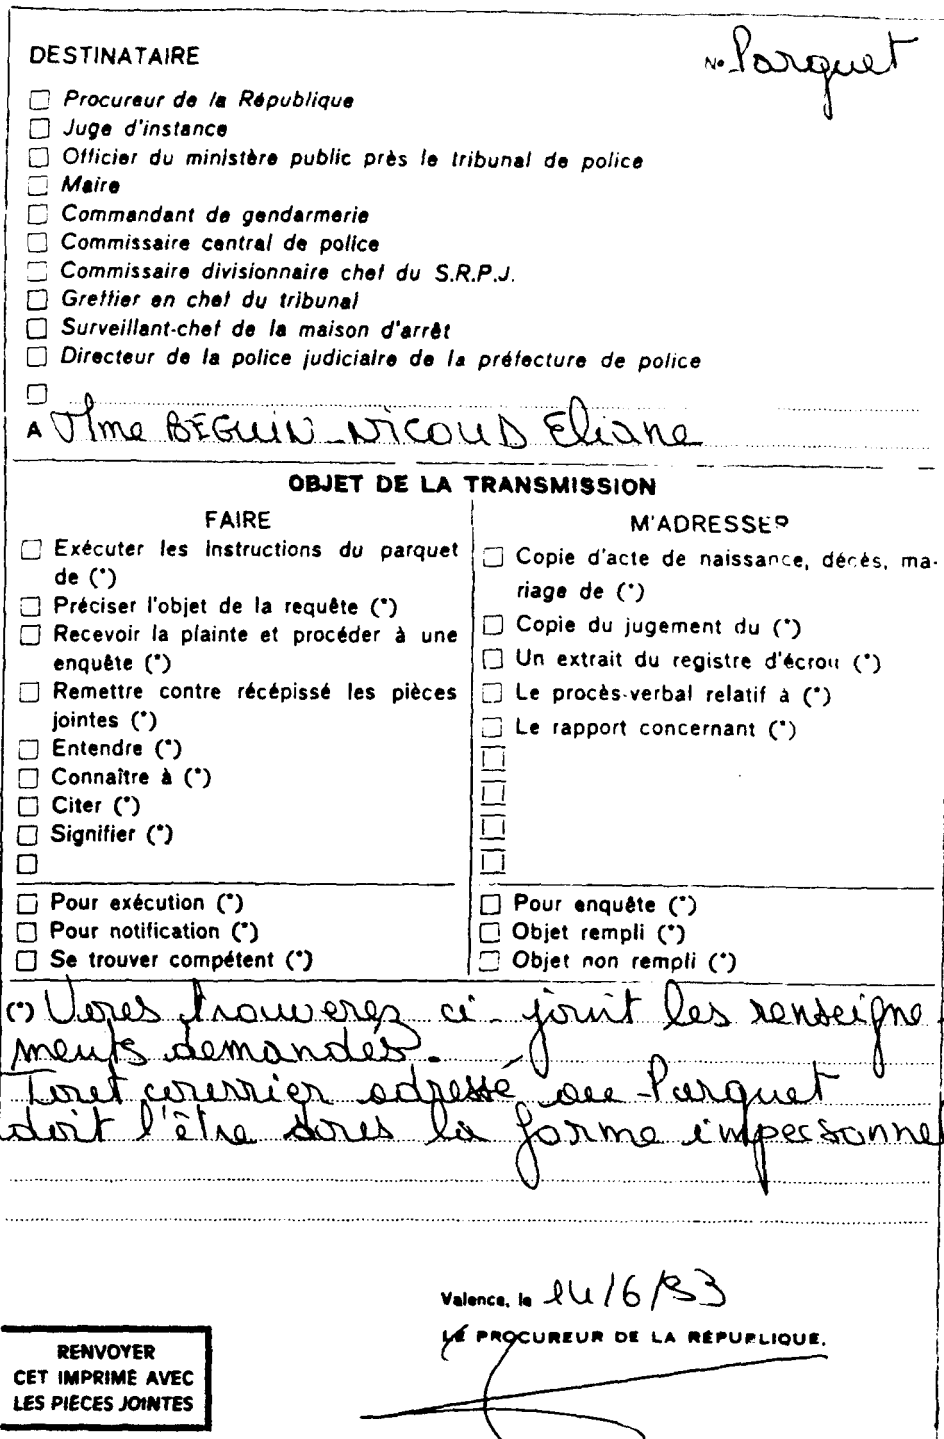 DESTINATAIRE
N° Parquet
Procureur de la République
Juge d'instance
Officier du ministère public près le tribunal de police
Maire
Commandant de gendarmerie
Commissaire central de police
Commissaire divisionnaire chef du S.R.P.J.
Greffier en chef du tribunal
Surveillant-chef de la maison d'arrêt
Directeur de la police judiciaire de la préfecture de police
A Mme BEGUIN-NICOUD Eliane
OBJET DE LA TRANSMISSION
FAIRE
Exécuter les instructions du parquet
de (*)
Préciser l'objet de la requête (*)
Recevoir la plainte et procéder à une
enquête (*)
Remettre contre récépissé les pièces
jointes (*)
Entendre (*)
Connaître à (*)
Citer (*)
Signifier (*)
M'ADRESSER
Copie d'acte de naissance, décès, ma-
riage de (*)
Copie du jugement du (*)
Un extrait du registre d'écrou (*)
Le procès-verbal relatif à (*)
Le rapport concernant (*)
Pour exécution (*)
Pour notification (*)
Se trouver compétent (*)
Pour enquête (*)
Objet rempli (*)
Objet non rempli (*)
(*) Vous trouverez ci-joint les renseigne-
ments demandés.
Tout courrier adressé au Parquet
doit l'être sous la forme impersonnel
Valence, le 14/6/93
LE PROCUREUR DE LA RÉPUBLIQUE.
RENVOYER
CET IMPRIMÉ AVEC
LES PIÈCES JOINTES